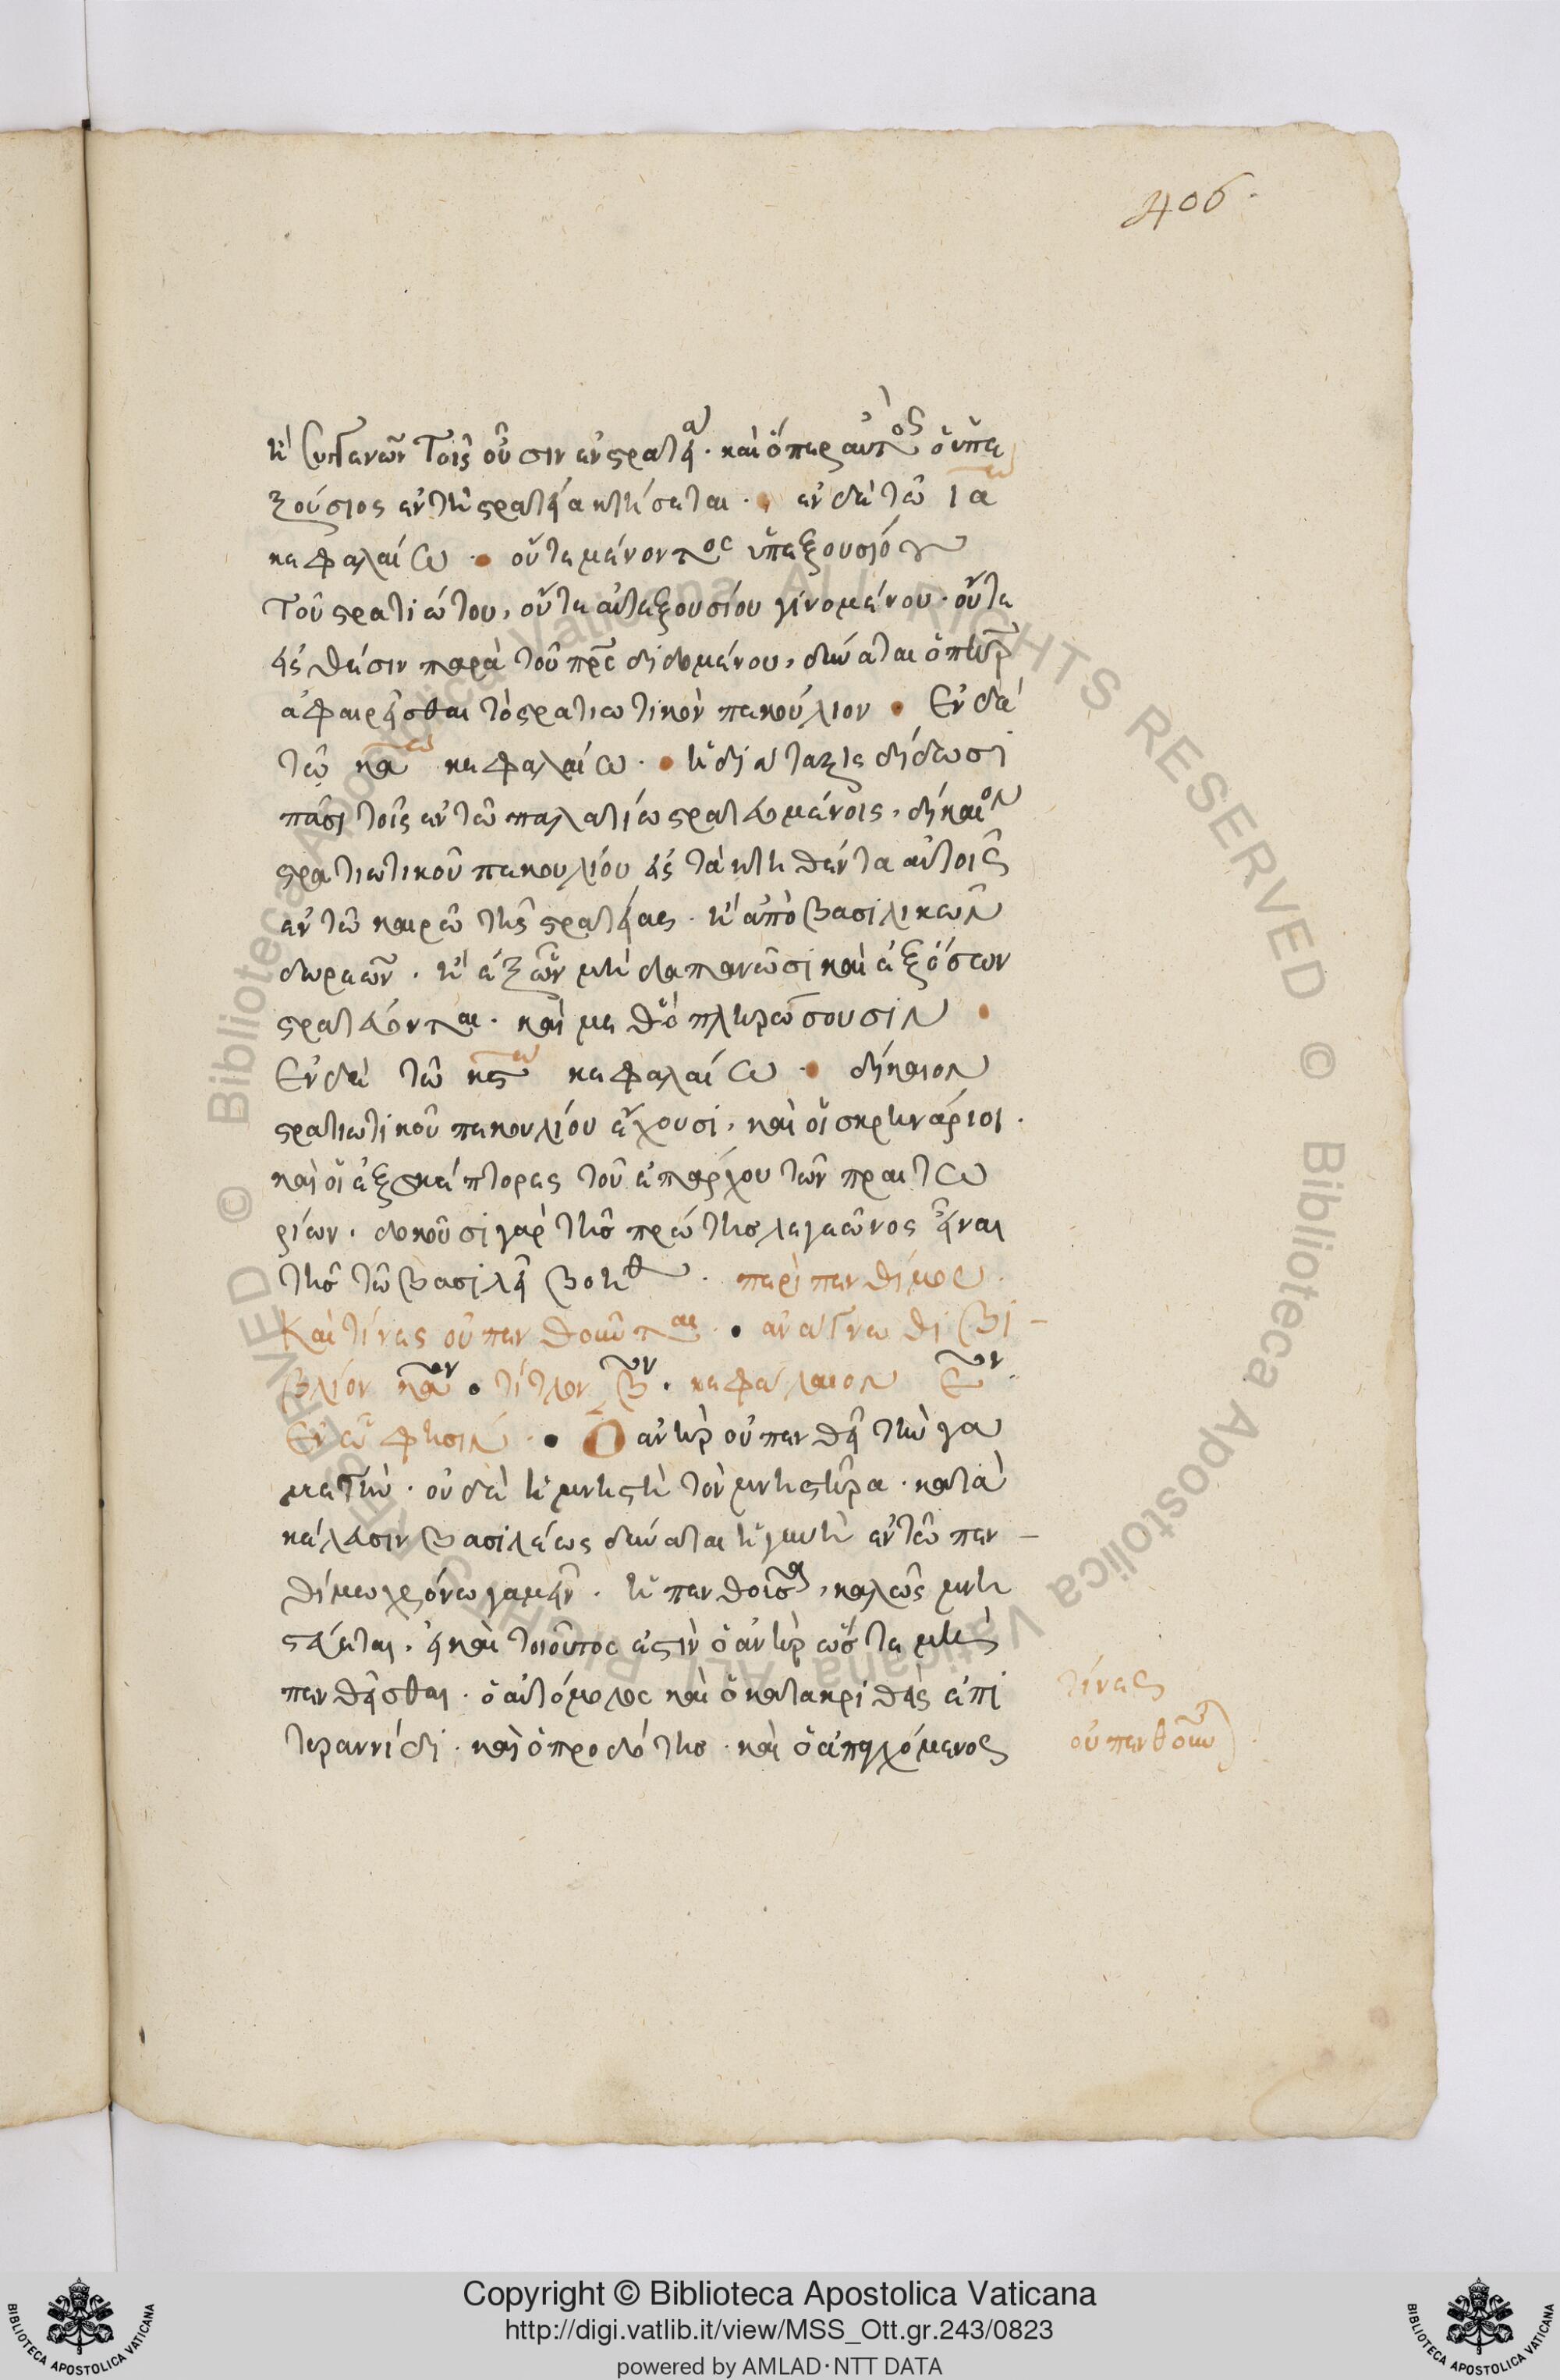 406.
ἢ συγγενῶν τοῖς οὖσιν ἐν στρατείᾳ. καὶ ὅπερ αὐτὸς ὁ ὑπε
ξούσιος ἐν τῇ στρατείᾳ κτήσεται. ἐν δὲ τῶ ιαω
κεφαλαίω. οὔτε μένοντος ὑπεξουσίου
τοῦ στρατιώτου, οὔτε αὐτεξουσίου γινομένου. οὔτε
εἰς θέσιν παρὰ τοῦ πρς διδομένου, δύναται ὁ πηρ
ἀφαιρεῖσθαι τὸ στρατιωτικὸν πεκούλιον. Ἐν δὲ
τῶ καω κεφαλαίω. ἡ διάταξις δίδωσι
πᾶσι τοῖς ἐν τῶ παλατίω στρατευομένοις, δίκαιον
στρατιωτικοῦ πεκουλίου εἰς τὰ κτηθέντα αὐτοῖς
ἐν τῶ καιρῶ τῆς στρατείας. ἢ ἀπὸ βασιλικῶν
δωρεῶν. ἢ ἐξ ὧν μὴ δαπανῶσι καὶ ἐξ ὅσων
στρατεύονται. καὶ μεθ' ὃ πληρώσουσιν
Ἐν δὲ τῶ κςω κεφαλαίω. δίκαιον
στρατιωτικοῦ πεκουλίου ἔχουσι, καὶ οἱ σκρηνάριοι.
καὶ οἱ ἐξσκέπτορες τοῦ ἐπάρχου τῶν πραιτω
ρίων. δοκοῦσι γὰρ τῆς πρώτης λεγεῶνος εἶναι
τῆς τῶ βασιλεῖ βοηθ. περὶ πενθίμου.
Καὶ τίνες οὐ πενθοῦνται. ἀνάγνωθι βι-
βλίον καον. τίτλον βον. κεφάλαιον
Ἐν ᾧ φησιν. Ὁ ἀνὴρ οὐ πενθεῖ τὴν γα
μετήν. οὐδὲ ἡ μνηστὴ τὸν μνηστῆρα. κατὰ
κέλευσιν βασιλέως δύναται ἡ γυνὴ ἐν τῶ πεν-
θίμω χρόνω γαμεῖν. ἡ πενθοῦσα, καλῶς μνη
στεύεται. εἰ καὶ τοιοῦτος ἐστὶν ὁ ἀνὴρ ὥστε μὴ
πενθεῖσθαι. ὁ αὐτόμολος καὶ ὁ κατακριθεὶς ἐπὶ
τυραννίδι. καὶ ὁ προδότης. καὶ ὁ ἀπαγχόμενος
τίνες
οὐ πενθοῦν)
Copyright © Biblioteca Apostolica Vaticana
http://digi.vatlib.it/view/MSS_Ott.gr.243/0823
powered by AMLAD·NTT DATA
© Biblioteca Apostolica Vaticana ALL RIGHTS RESERVED © Biblioteca Apostolica Vaticana ALL RIGHTS RESERVED
BIBLIOTECA APOSTOLICA VATICANA
BIBLIOTECA APOSTOLICA VATICANA